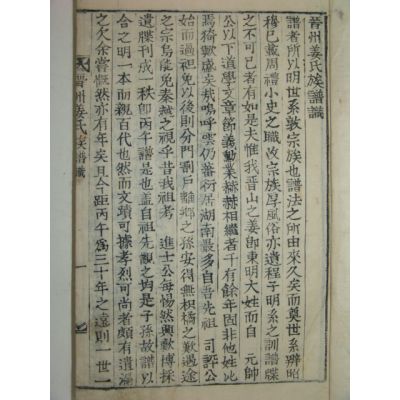 晉州姜氏族譜識
譜者所以明世系敦宗族也譜法之所由來久矣而奠世系辨昭
穆已載周禮小史之職改宗族厚風俗亦遺程子明系之訓譜牒
之不可已者有如是夫惟我晉山之姜卽東明大姓而自 元帥
公以下道學文章節義勳業赫赫相繼者千有餘年固非他姓比
焉猗歟盛矣哉嗚呼雲仍蕃衍居湖南最多自吾先祖 司評公
始而過祖免以後則分門割戶離鄕之孫安得無枳橘之歎過途
之宗烏能免秦越之視乎昔我祖考 進士公毋惕然興歎博採
遺牒刊成一秩卽丙午譜是也盖自祖先觀之均是子孫故譜以
合之明一本而親百代也然而文蹟可據孝烈可尚者頗有遺漏
之欠余嘗慨然亦有年矣且今距丙午爲三十年之遠則一世二
晋州姜氏族譜識
一